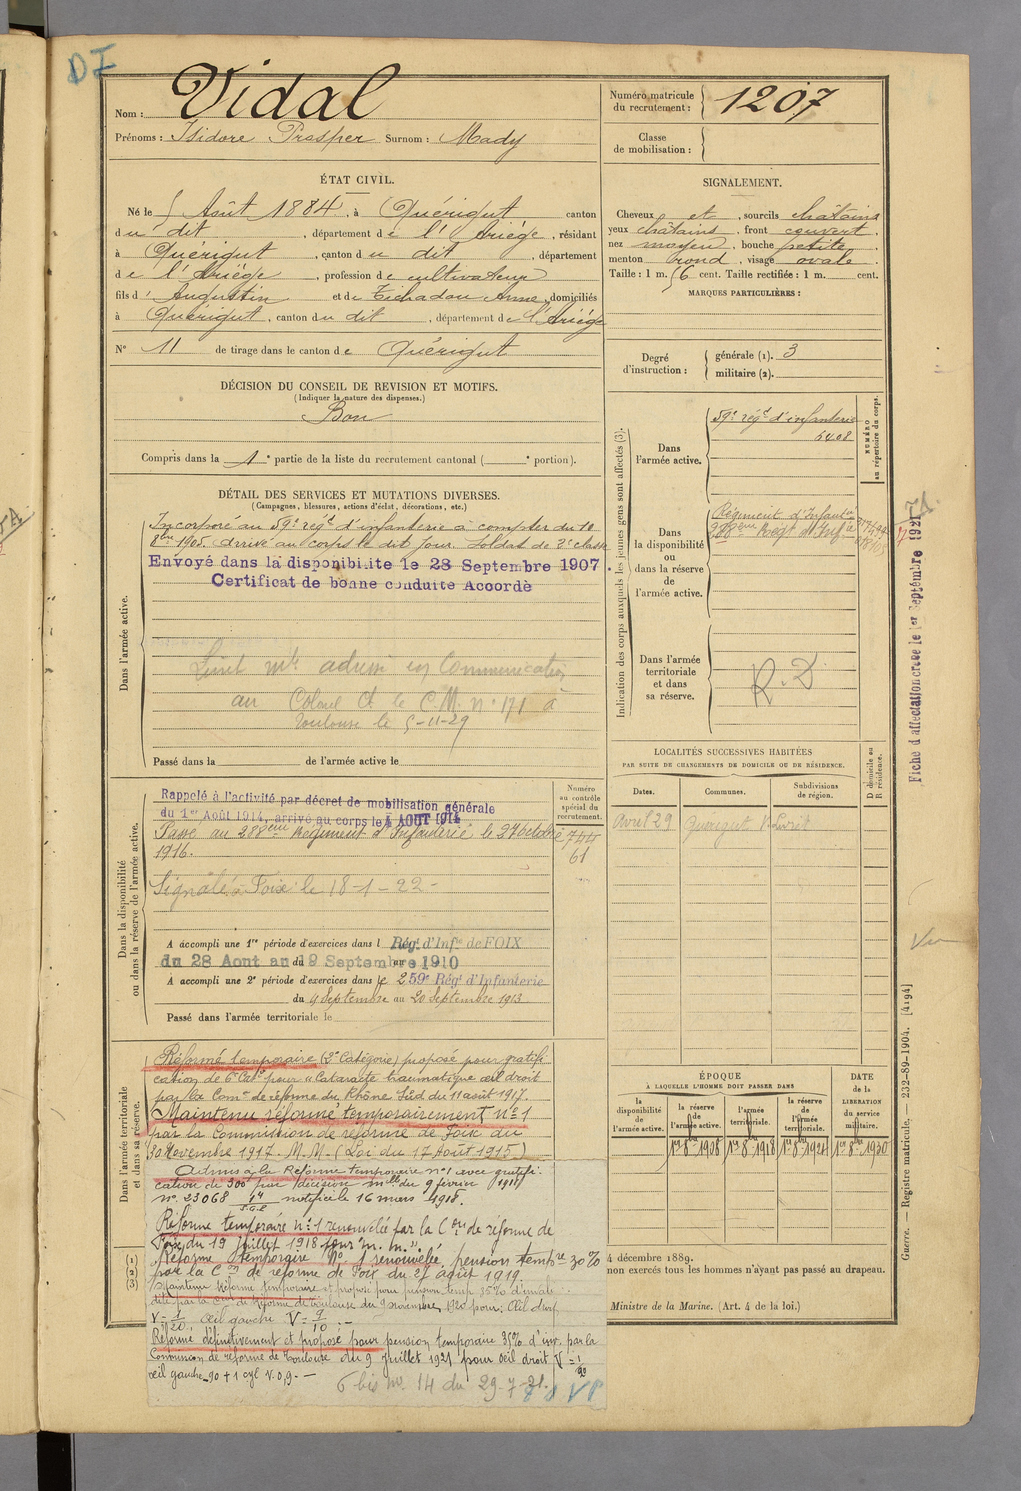 DI
Nom : Vidal
Prénoms : Isidore Prosper Surnom : Mady
Numéro matricule
du recrutement : 1207
Classe
de mobilisation :
ÉTAT CIVIL.
Né le 5 Août 1884, à Quérigut canton
du dit, département de l'Ariège, résidant
à Quérigut, canton du dit, département
de l'Ariège, profession de cultivateur
fils d'Augustin et de Tichadou Anne, domiciliés
à Quérigut, canton du dit, département de l'Ariège
N° 11 de tirage dans le canton de Quérigut
SIGNALEMENT.
Cheveux et, sourcils châtains
yeux châtains, front couvert,
nez moyen, bouche petite,
menton rond, visage ovale.
Taille : 1 m. 56 cent. Taille rectifiée : 1 m. cent.
MARQUES PARTICULIÈRES :
Degré
d'instruction :
générale (1). 3
militaire (2).
DÉCISION DU CONSEIL DE REVISION ET MOTIFS.
(Indiquer la nature des dispenses.)
Bon
Compris dans la 1e partie de la liste du recrutement cantonal ( e portion).
DÉTAIL DES SERVICES ET MUTATIONS DIVERSES.
(Campagnes, blessures, actions d'éclat, décorations, etc.)
Dans l'armée active.
Incorporé au 59e régt d'infanterie à compter du 10
8bre 1905. Arrivé au corps le dit jour. Soldat de 2e classe
Envoyé dans la disponibilite le 28 Septembre 1907.
Certificat de bonne conduite Accordè
Livret mle adressé en Communication
au Colonel Ct le C.M. n° 171 à
Toulouse le 5-11-29
Passé dans la de l'armée active le
Indication des corps auxquels les jeunes gens sont affectés (3).
NUMÉRO
au répertoire du corps.
Dans
l'armée active.
59e régt d'infanterie
5408
Dans
la disponibilité
ou
dans la réserve
de
l'armée active.
Régiment d'Infanterie
288ème Régt d'Infie
Dans l'armée
territoriale
et dans
sa réserve.
R.D
Fiche d'affectation créée le 1er Septembre 1921
Dans la disponibilité
ou dans la réserve de l'armée active.
Numéro
au contrôle
spécial du
recrutement.
Rappelé à l'activité par décret de mobilisation générale
du 1er Août 1914, arrivé au corps le 4 AOUT 1914
Passé au 288ème Régiment d'Infanterie le 27 octobre
1916.
744
61
Signalé à Foix le 18-1-22-
A accompli une 1re période d'exercices dans l Régt d'Infie de FOIX
du 28 Aout au 19 Septembre 1910
A accompli une 2e période d'exercices dans le 259e Régt d'Infanterie
du 4 Septembre au 20 Septembre 1913
Passé dans l'armée territoriale le
LOCALITÉS SUCCESSIVES HABITÉES
PAR SUITE DE CHANGEMENTS DE DOMICILE OU DE RÉSIDENCE.
Dates.
Communes.
Subdivisions
de région.
D domicile ou
R résidence.
Avril 29 Quérigut
Vu
Dans l'armée territoriale
et dans sa réserve.
Réformé temporaire (2e Catégorie) proposé pour gratifi
cation de 6e Catie pour "Cataracte traumatique œil droit
par la Comon de réforme du Rhône Sud du 11 août 1917.
Maintenu réformé temporairement n° 1
par la Commission de réforme de Foix du
30 Novembre 1917. M.M. (Loi du 17 Août 1915)
Admis à la Réforme temporaire n° 1 avec gratifi
cation de 300f par décision mlle du 9 février 1918
n° 23068 notifiée le 16 mars 1918.
Réforme temporaire n° 1 renouvelée par la Con de réforme de
Foix du 19 Juillet 1918 pour "m. m."
Réforme temporaire N° 1 renouvelée, pension tempre 30%
par la Con de réforme de Foix du 27 août 1919
Maintenu Réformé temporaire et proposé pour pension temp 35% d'invali-
dité par la Con de Réforme de Toulouse du 9 novembre 1920 pour : Œil droit
V = 1/20. Œil gauche V = 9/10. -
Réformé définitivement et proposé pour pension temporaire 35% d'inv. par la
Commission de réforme de Toulouse du 9 Juillet 1921 pour œil droit V = 1/20
œil gauche -90 + 1 cyl V. 0,9. -
6 bis no. 14 du 29-7-21.
(1)
(2)
(3)
ÉPOQUE
À LAQUELLE L'HOMME DOIT PASSER DANS
la
disponibilité
de
l'armée active.
la réserve
de
l'armée active.
l'armée
territoriale.
la réserve
de
l'armée
territoriale.
DATE
de la
LIBÉRATION
du service
militaire.
1er 8bre 1908
1er 8bre 1918
1er 8bre 1924
1er 8bre 1930
4 décembre 1889.
non exercés tous les hommes n'ayant pas passé au drapeau.
Ministre de la Marine. (Art. 4 de la loi.)
Guerre. — Registre matricule. — 232-89-1904. [4194]